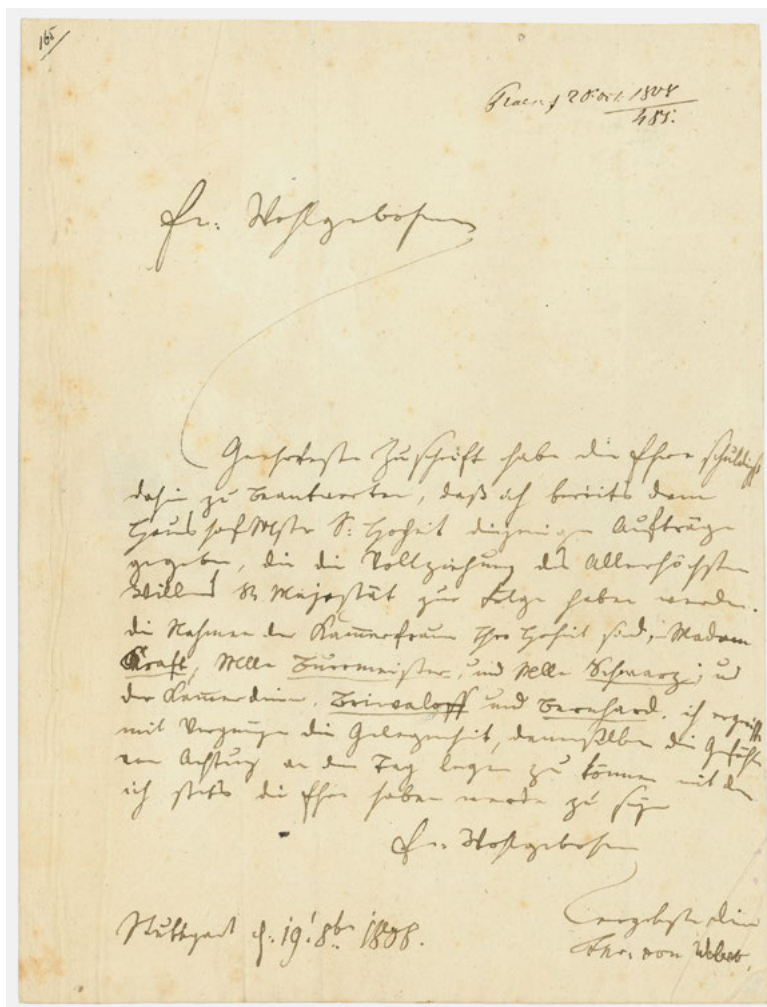 165
Praes. d 20 Oct. 1808
485.
Ew: Wohlgebohren
Geehrteste Zuschrift habe die Ehre schuldigst
dahin zu beantworten, daß ich bereits dem
HaushofMstr Sr: Hoheit diejenigen Aufträge
gegeben, die die Vollziehung des Allerhöchsten
Willens Sr Majestät zur Folge haben werden.
die Nahmen der Kammerfrauen Ihro Hoheit sind, Madam
Kraft, Mlle Burrmeister, und Melle Schwarz; und
der Kammerdiener. Briwaloff und Bernhard. ich ergreiffe
mit Vergnügen die Gelegenheit, denenselben die Gefühle
von Achtung an den Tag legen zu können mit den
ich stets die Ehre haben werde zu seyn
Ew. Wohlgebohren
ergebenster Diener
Stuttgart d: 19t 8br 1808.
Fhr. von Weber.